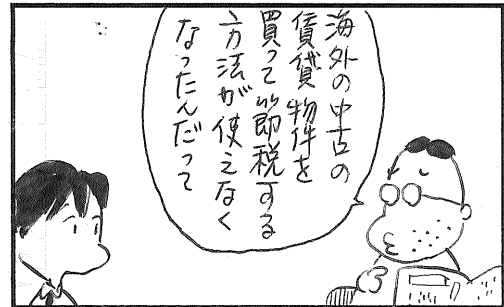 海外の中古の
賃貸物件を
買って節税する
方法が使えなく
なったんだって